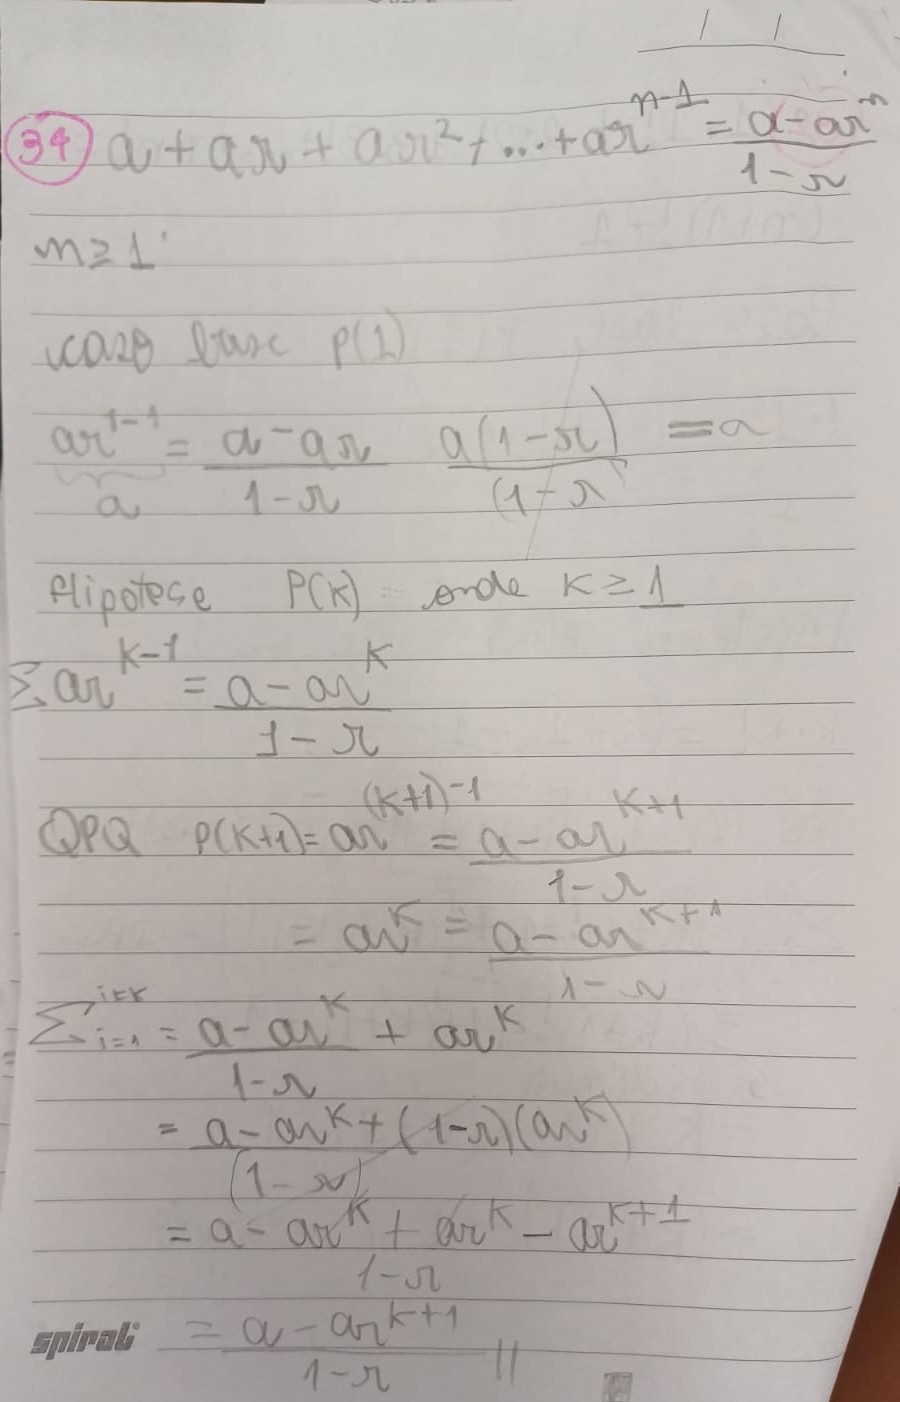 34 a + ar + ar² + ... + ar^(n-1) = (a - ar^n)/(1 - r)
n ≥ 1
caso base P(1)
ar^(1-1) = (a - ar)/(1 - r) a(1 - r)/(1 - r) = a
a
Hipotese P(K) onde K ≥ 1
Σ ar^(K-1) = (a - ar^K)/(1 - r)
QPQ P(K+1) = ar^((K+1)-1) = (a - ar^(K+1))/(1 - r)
= ar^K = (a - ar^(K+1))/(1 - r)
Σ_(i=1)^(i=K) = (a - ar^K)/(1 - r) + ar^K
= (a - ar^K + (1 - r)(ar^K))/(1 - r)
= (a - ar^K + ar^K - ar^(K+1))/(1 - r)
= (a - ar^(K+1))/(1 - r) //
spiral